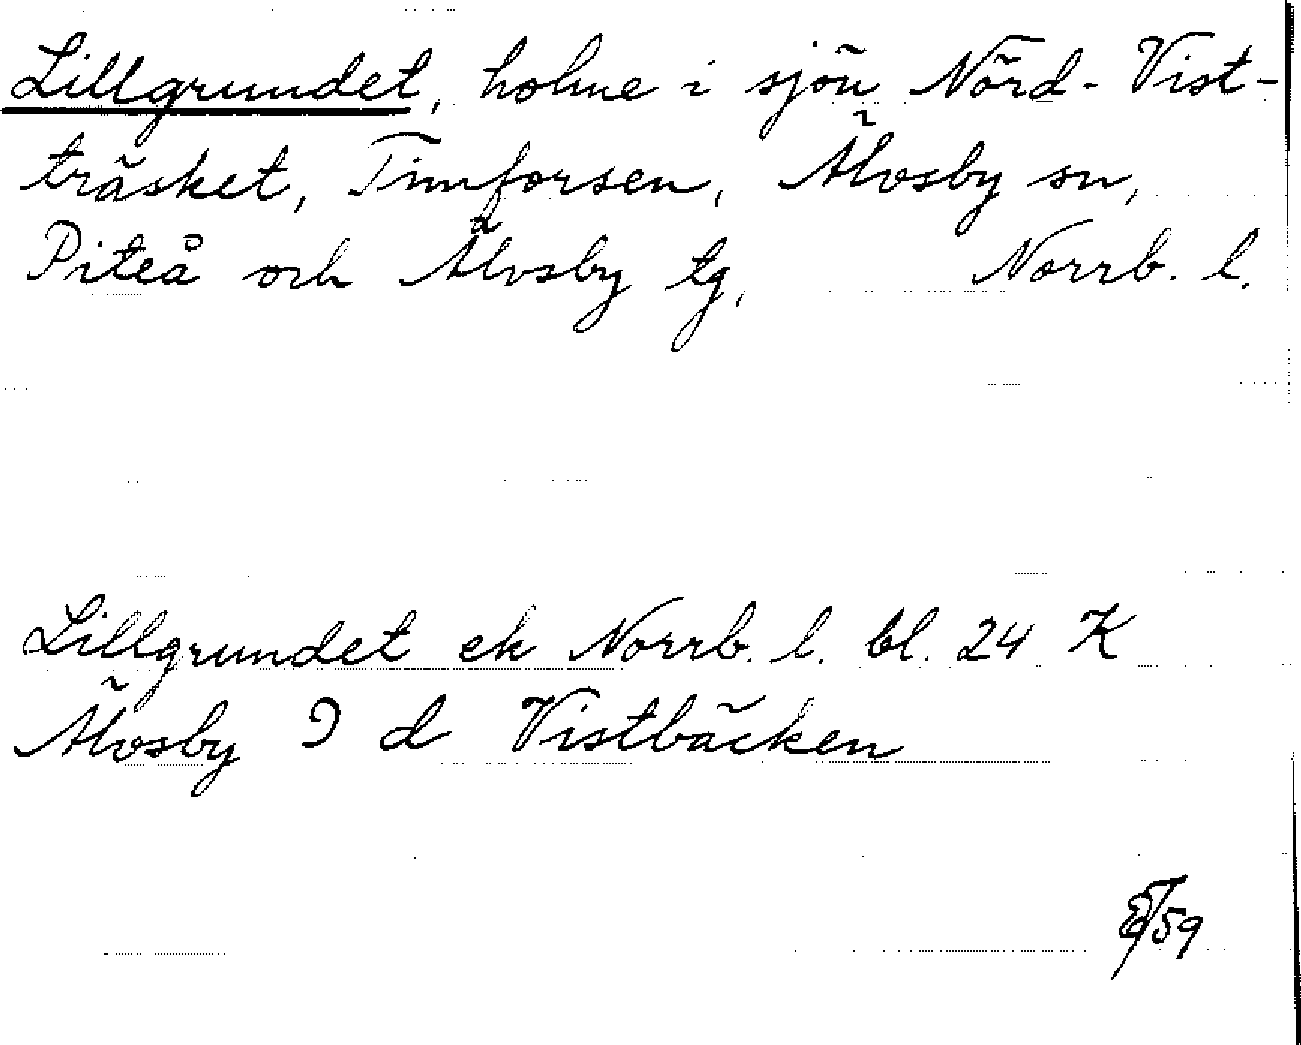 Lillgrundet, holme i sjön Nörd-Vist-
träsket, Timforsen, Älvsby sn,
Piteå och Älvsby tg, Norrb. l.
Lillgrundet ek Norrb. l. bl. 24 K
Älvsby 9 d Vistbäcken
59